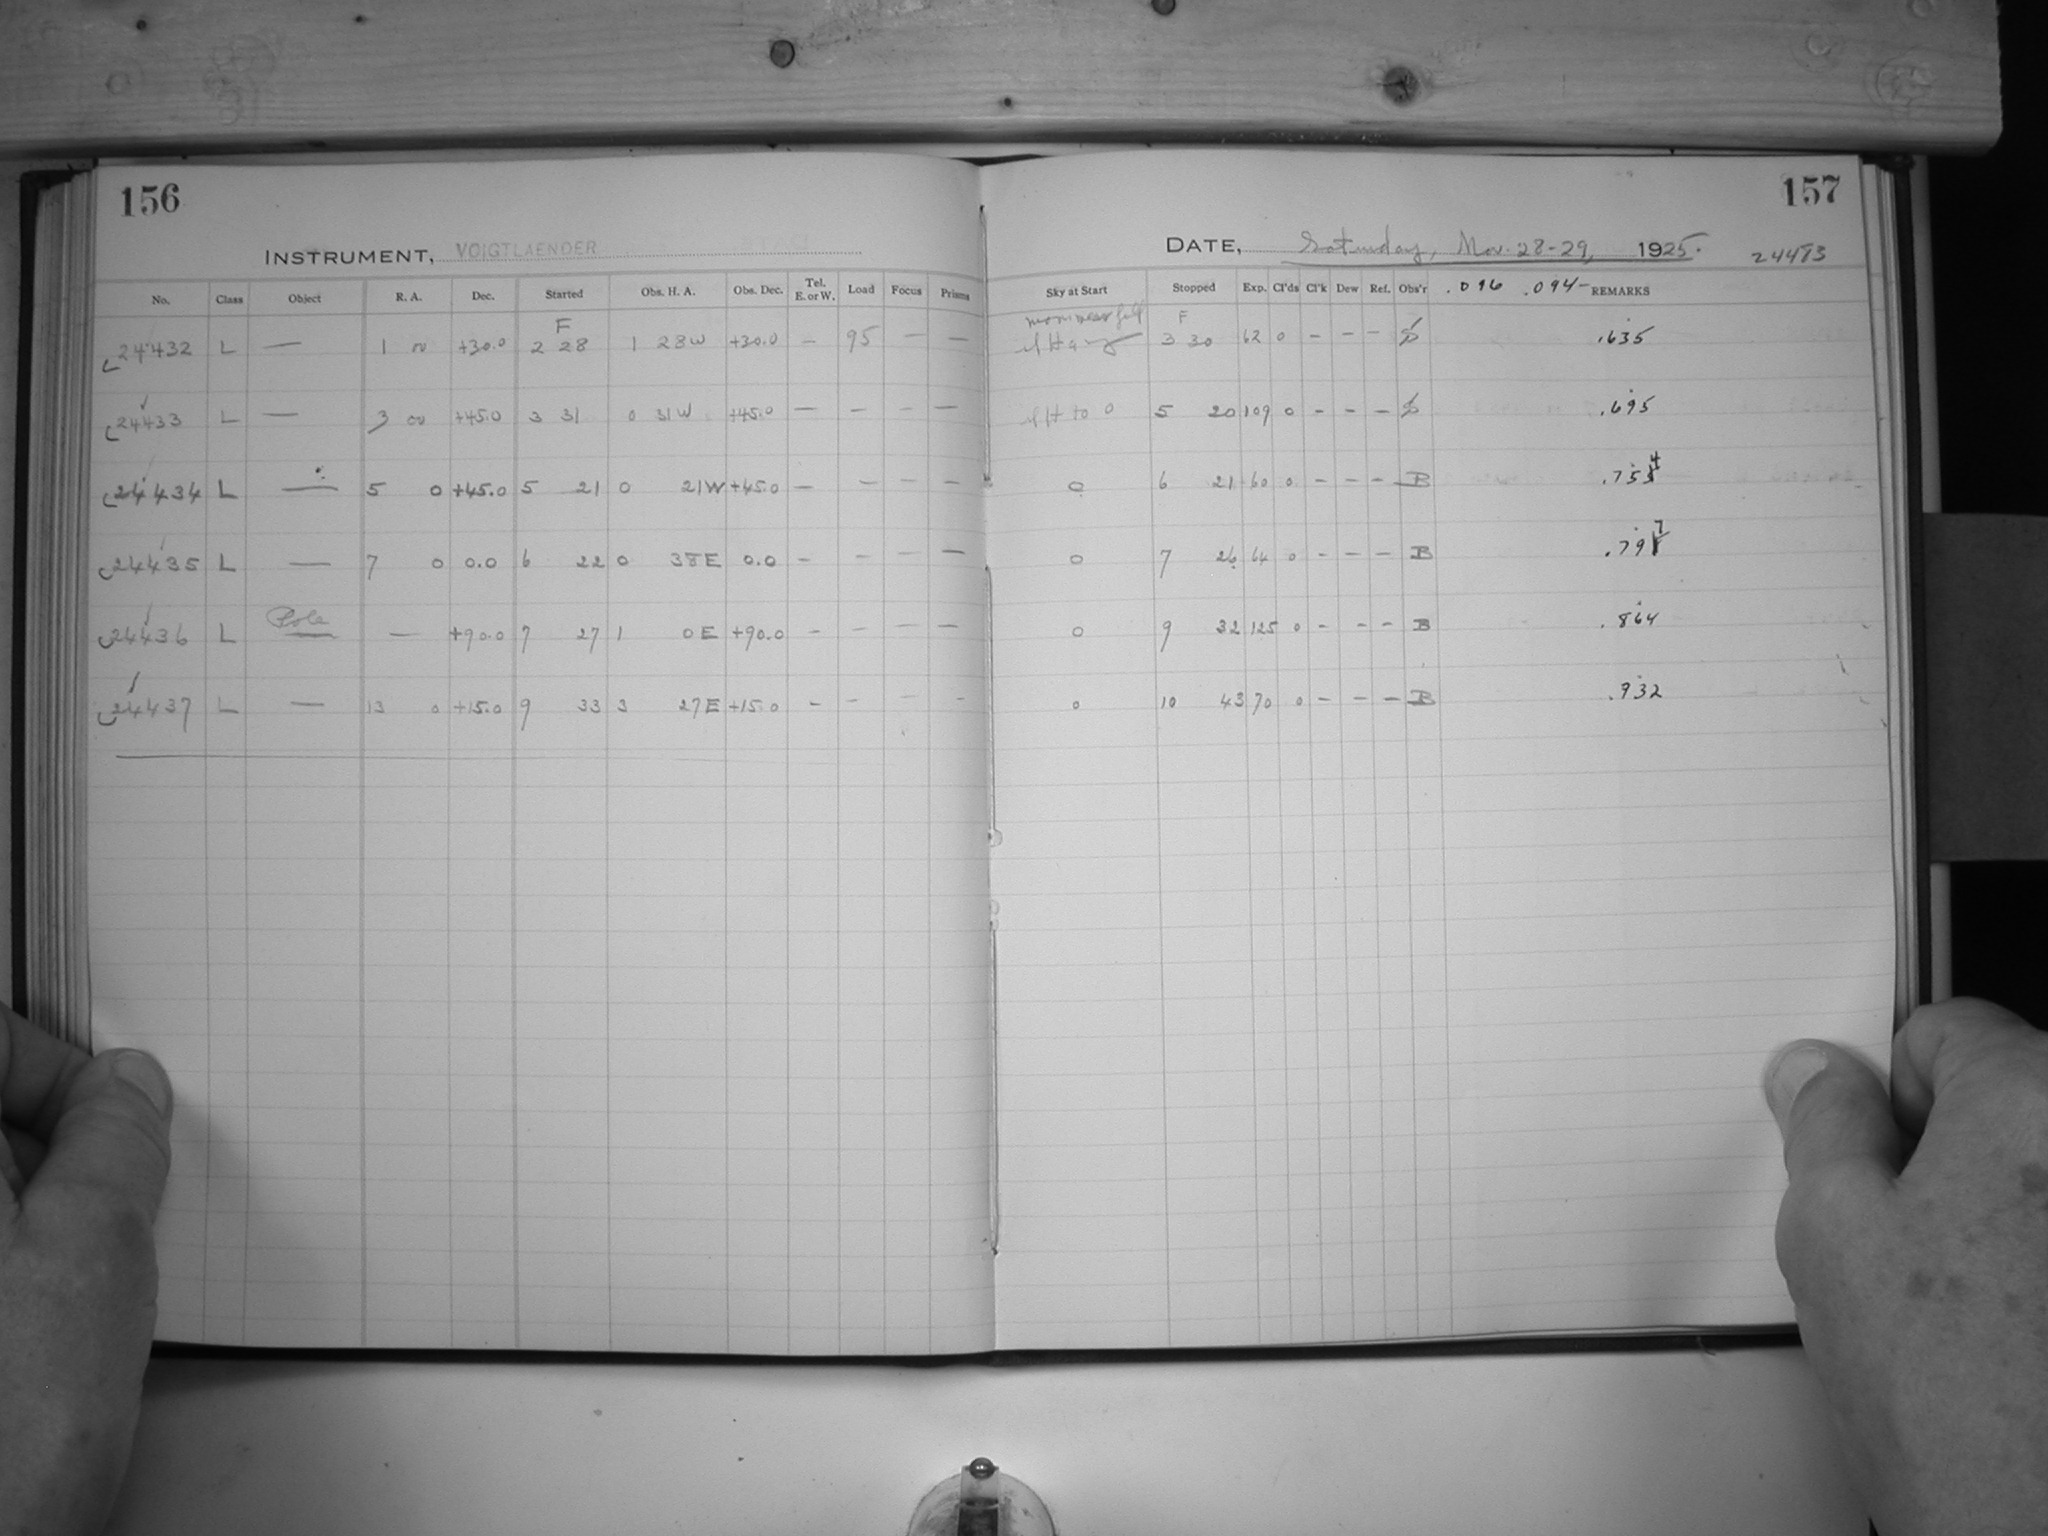 156 157
INSTRUMENT, VOIGTLAENDER DATE, Saturday, Nov. 28-29, 1925. 24483
No. Class Object R. A. Dec. Started Obs. H. A. Obs. Dec. Tel. E. or W. Load Focus Prisms Sky at Start Stopped Exp. Cl'ds Cl'k Dew Ref. Obs'r .096 .094- REMARKS
F moon near full F
24432 L — 1 00 +30.0 2 28 1 28W +30.0 — 95 — — 3 30 62 0 - - - .635
24433 L — 3 00 +45.0 3 31 0 31W +45.0 — — - — to 0 5 20 109 0 - - - .695
24434 L — 5 0 +45.0 5 21 0 21W +45.0 — — — — 0 6 21 60 0 - - - B .754
24435 L — 7 0 0.0 6 22 0 38E 0.0 — — — — 0 7 26 64 0 - - - B .797
Pole
24436 L — — +90.0 7 27 1 0E +90.0 — — — — 0 9 32 125 0 - - - B .864
24437 L — 13 0 +15.0 9 33 3 27E +15.0 — — — - 0 10 43 70 0 - - - B .932